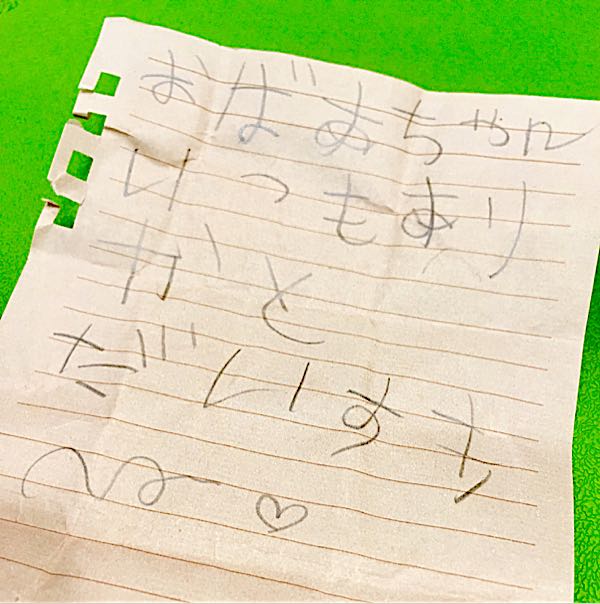 おばあちゃん
いつもあり
がと
だいすき
♡